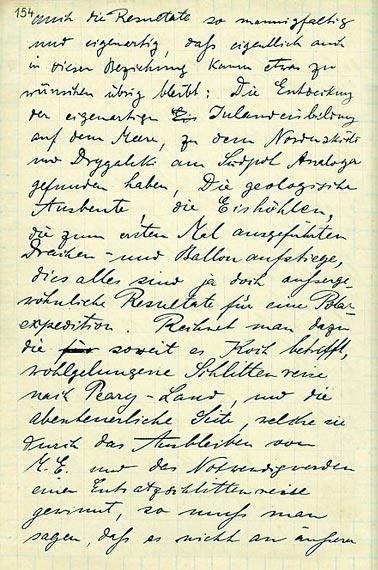 154
auch die Resultate so mannigfaltig
und eigenartig, daß eigentlich auch
in dieser Beziehung kaum etwas zu
wünschen übrig bleibt: Die Entdeckung
der eigenartigen Inlandeisbildung
auf dem Meere, zu dem Nordenskjöld
und Drygalski am Südpol Analoga
gefunden haben, Die geologische
Ausbeute, die Eishöhlen,
die zum ersten Mal ausgeführten
Drachen- und Ballonaufstiege,
dies alles sind ja doch außerge-
wöhnliche Resultate für eine Polar-
expedition. Rechnet man dazu
die für soweit es Koch betrifft,
wohlgelungene Schlittenreise
nach Peary-Land, und die
abenteuerliche Seite, welche sie
durch das Ausbleiben von
M.-E. und das Notwendigwerden
einer Entsatzschlittenreise
gewinnt, so muß man
sagen, daß es nicht an äußeren